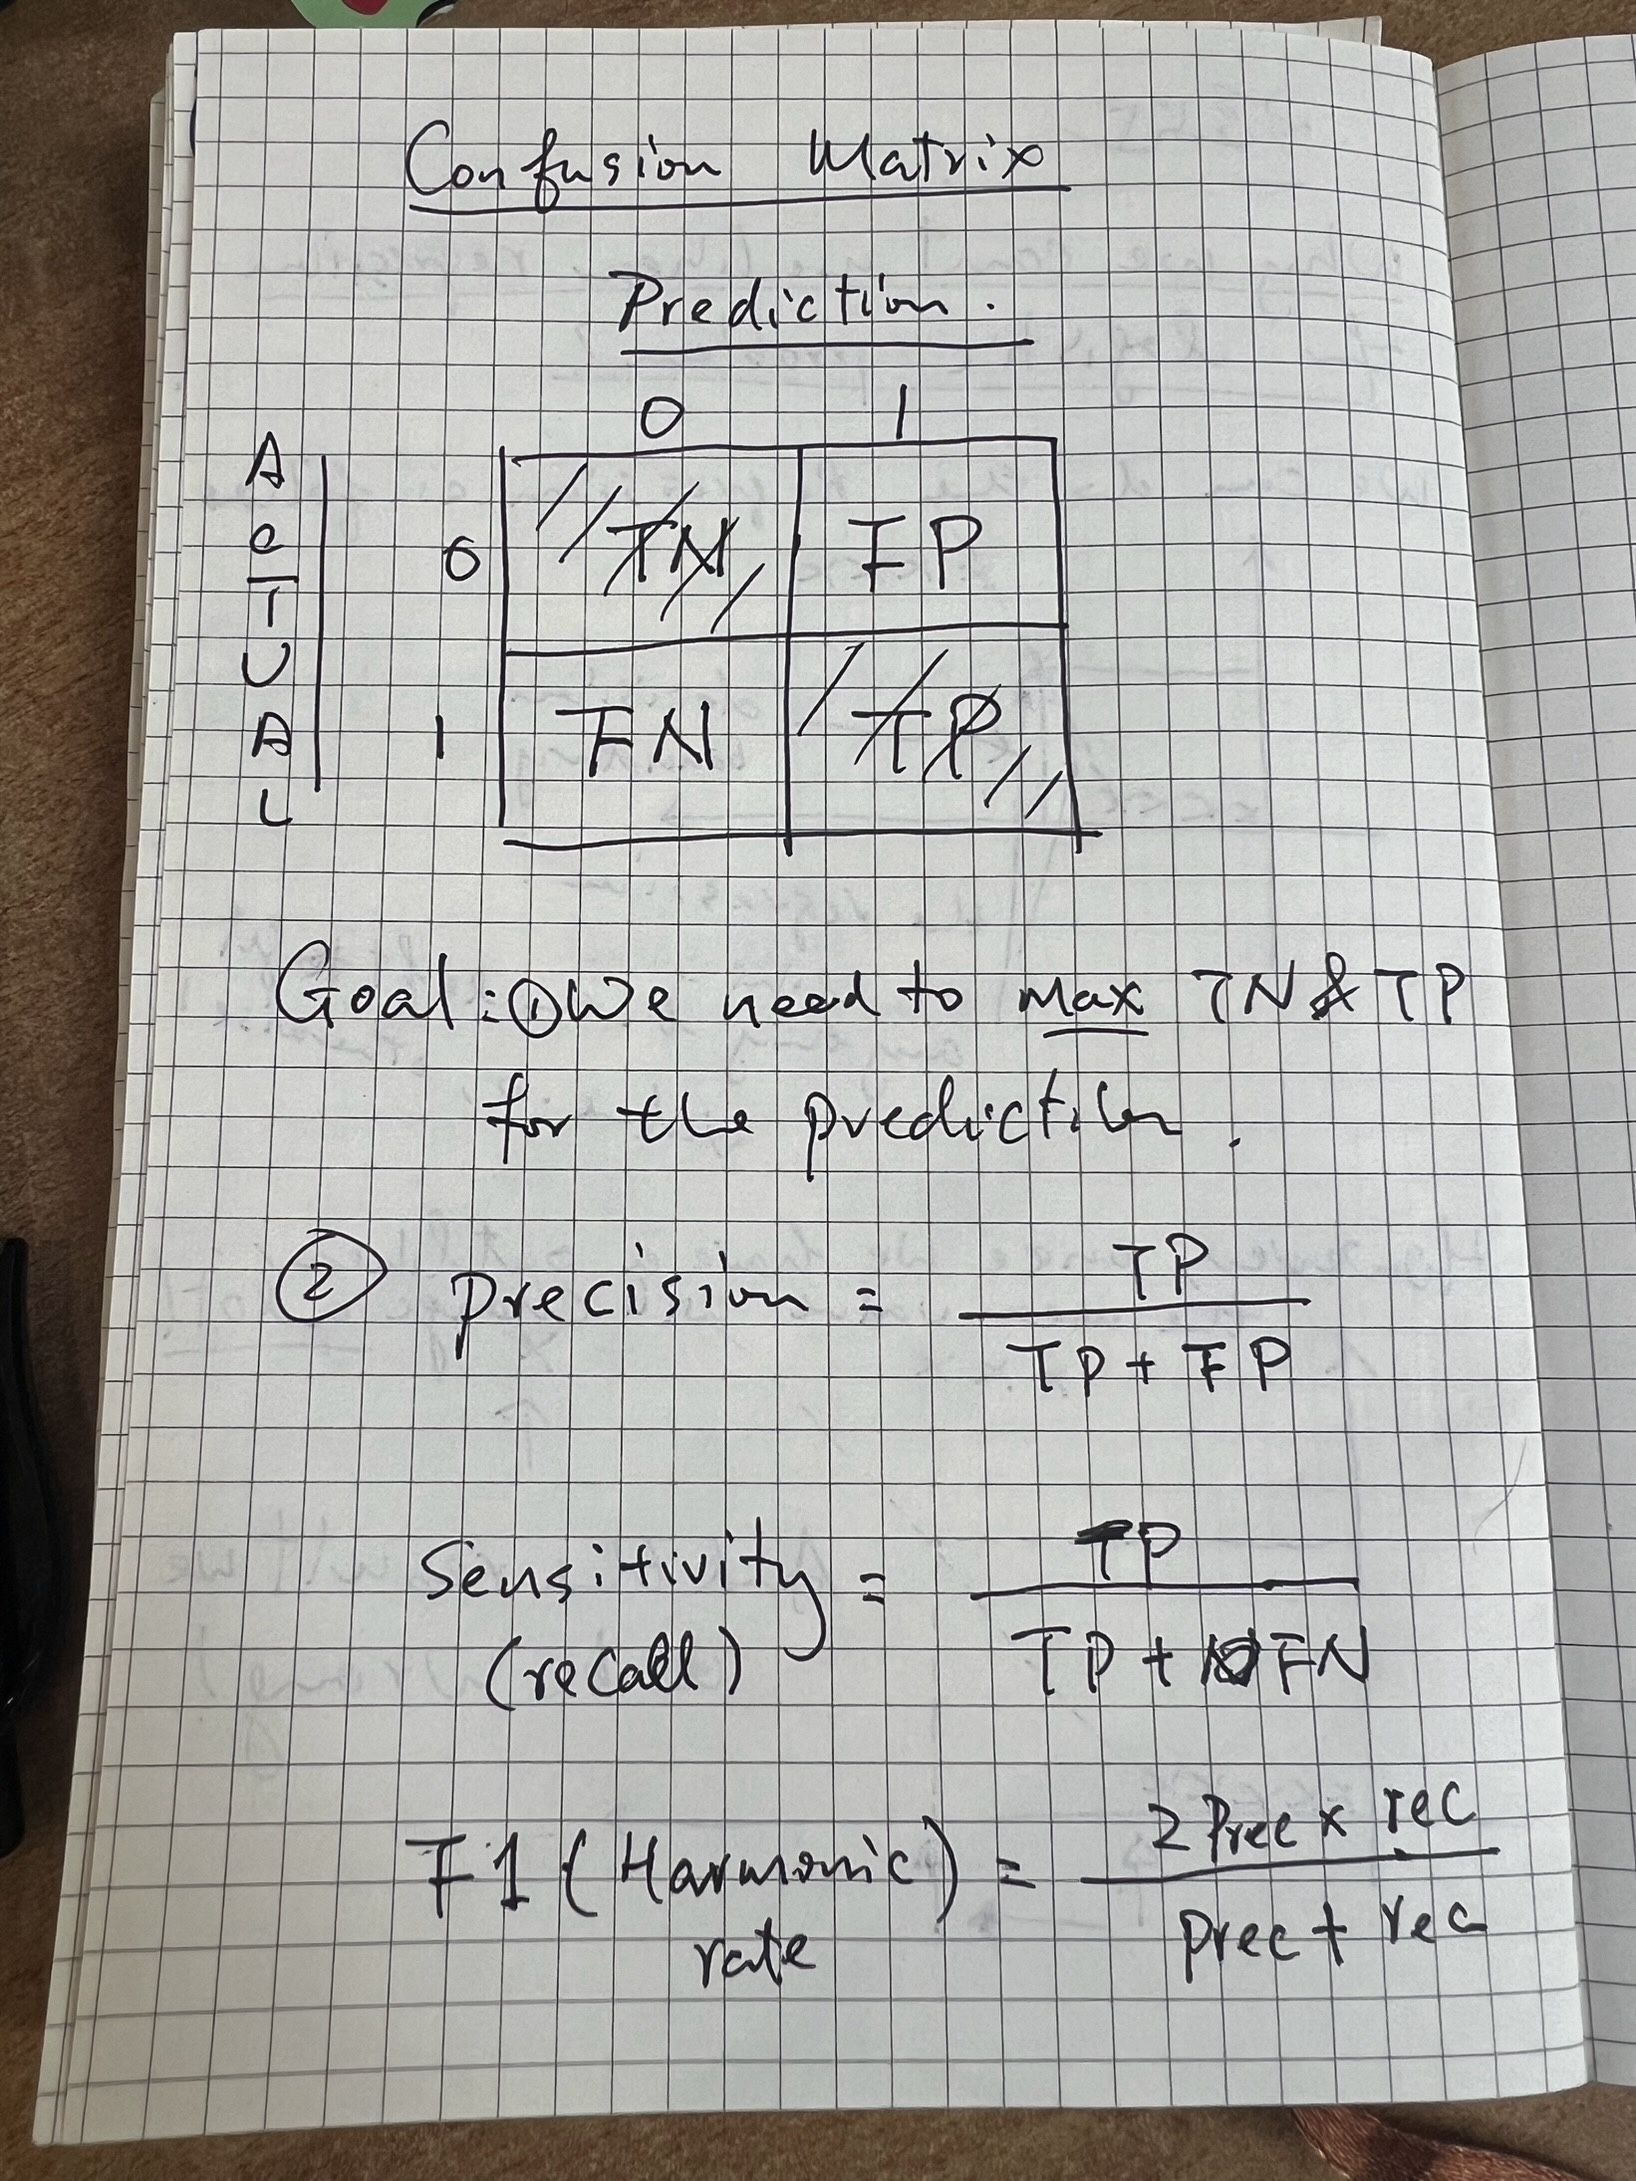 Confusion Matrix
Prediction.
0 1
ACTUAL
0 TN FP
1 FN TP
Goal: ① We need to max TN & TP
for the prediction.
② precision = TP
TP + FP
Sensitivity = TP
(recall) TP + FN
F1 (Harmonic) = 2 Prec x rec
rate prec + rec